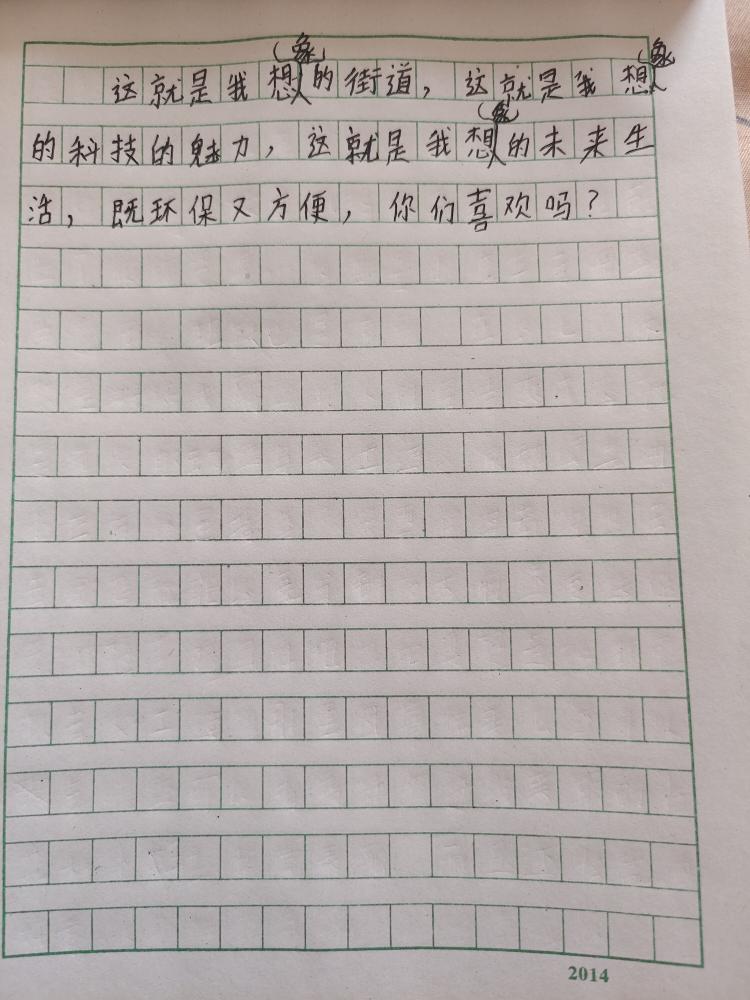 这就是我想象的街道，这就是我想象
的科技的魅力，这就是我想象的未来生
活，既环保又方便，你们喜欢吗？
2014